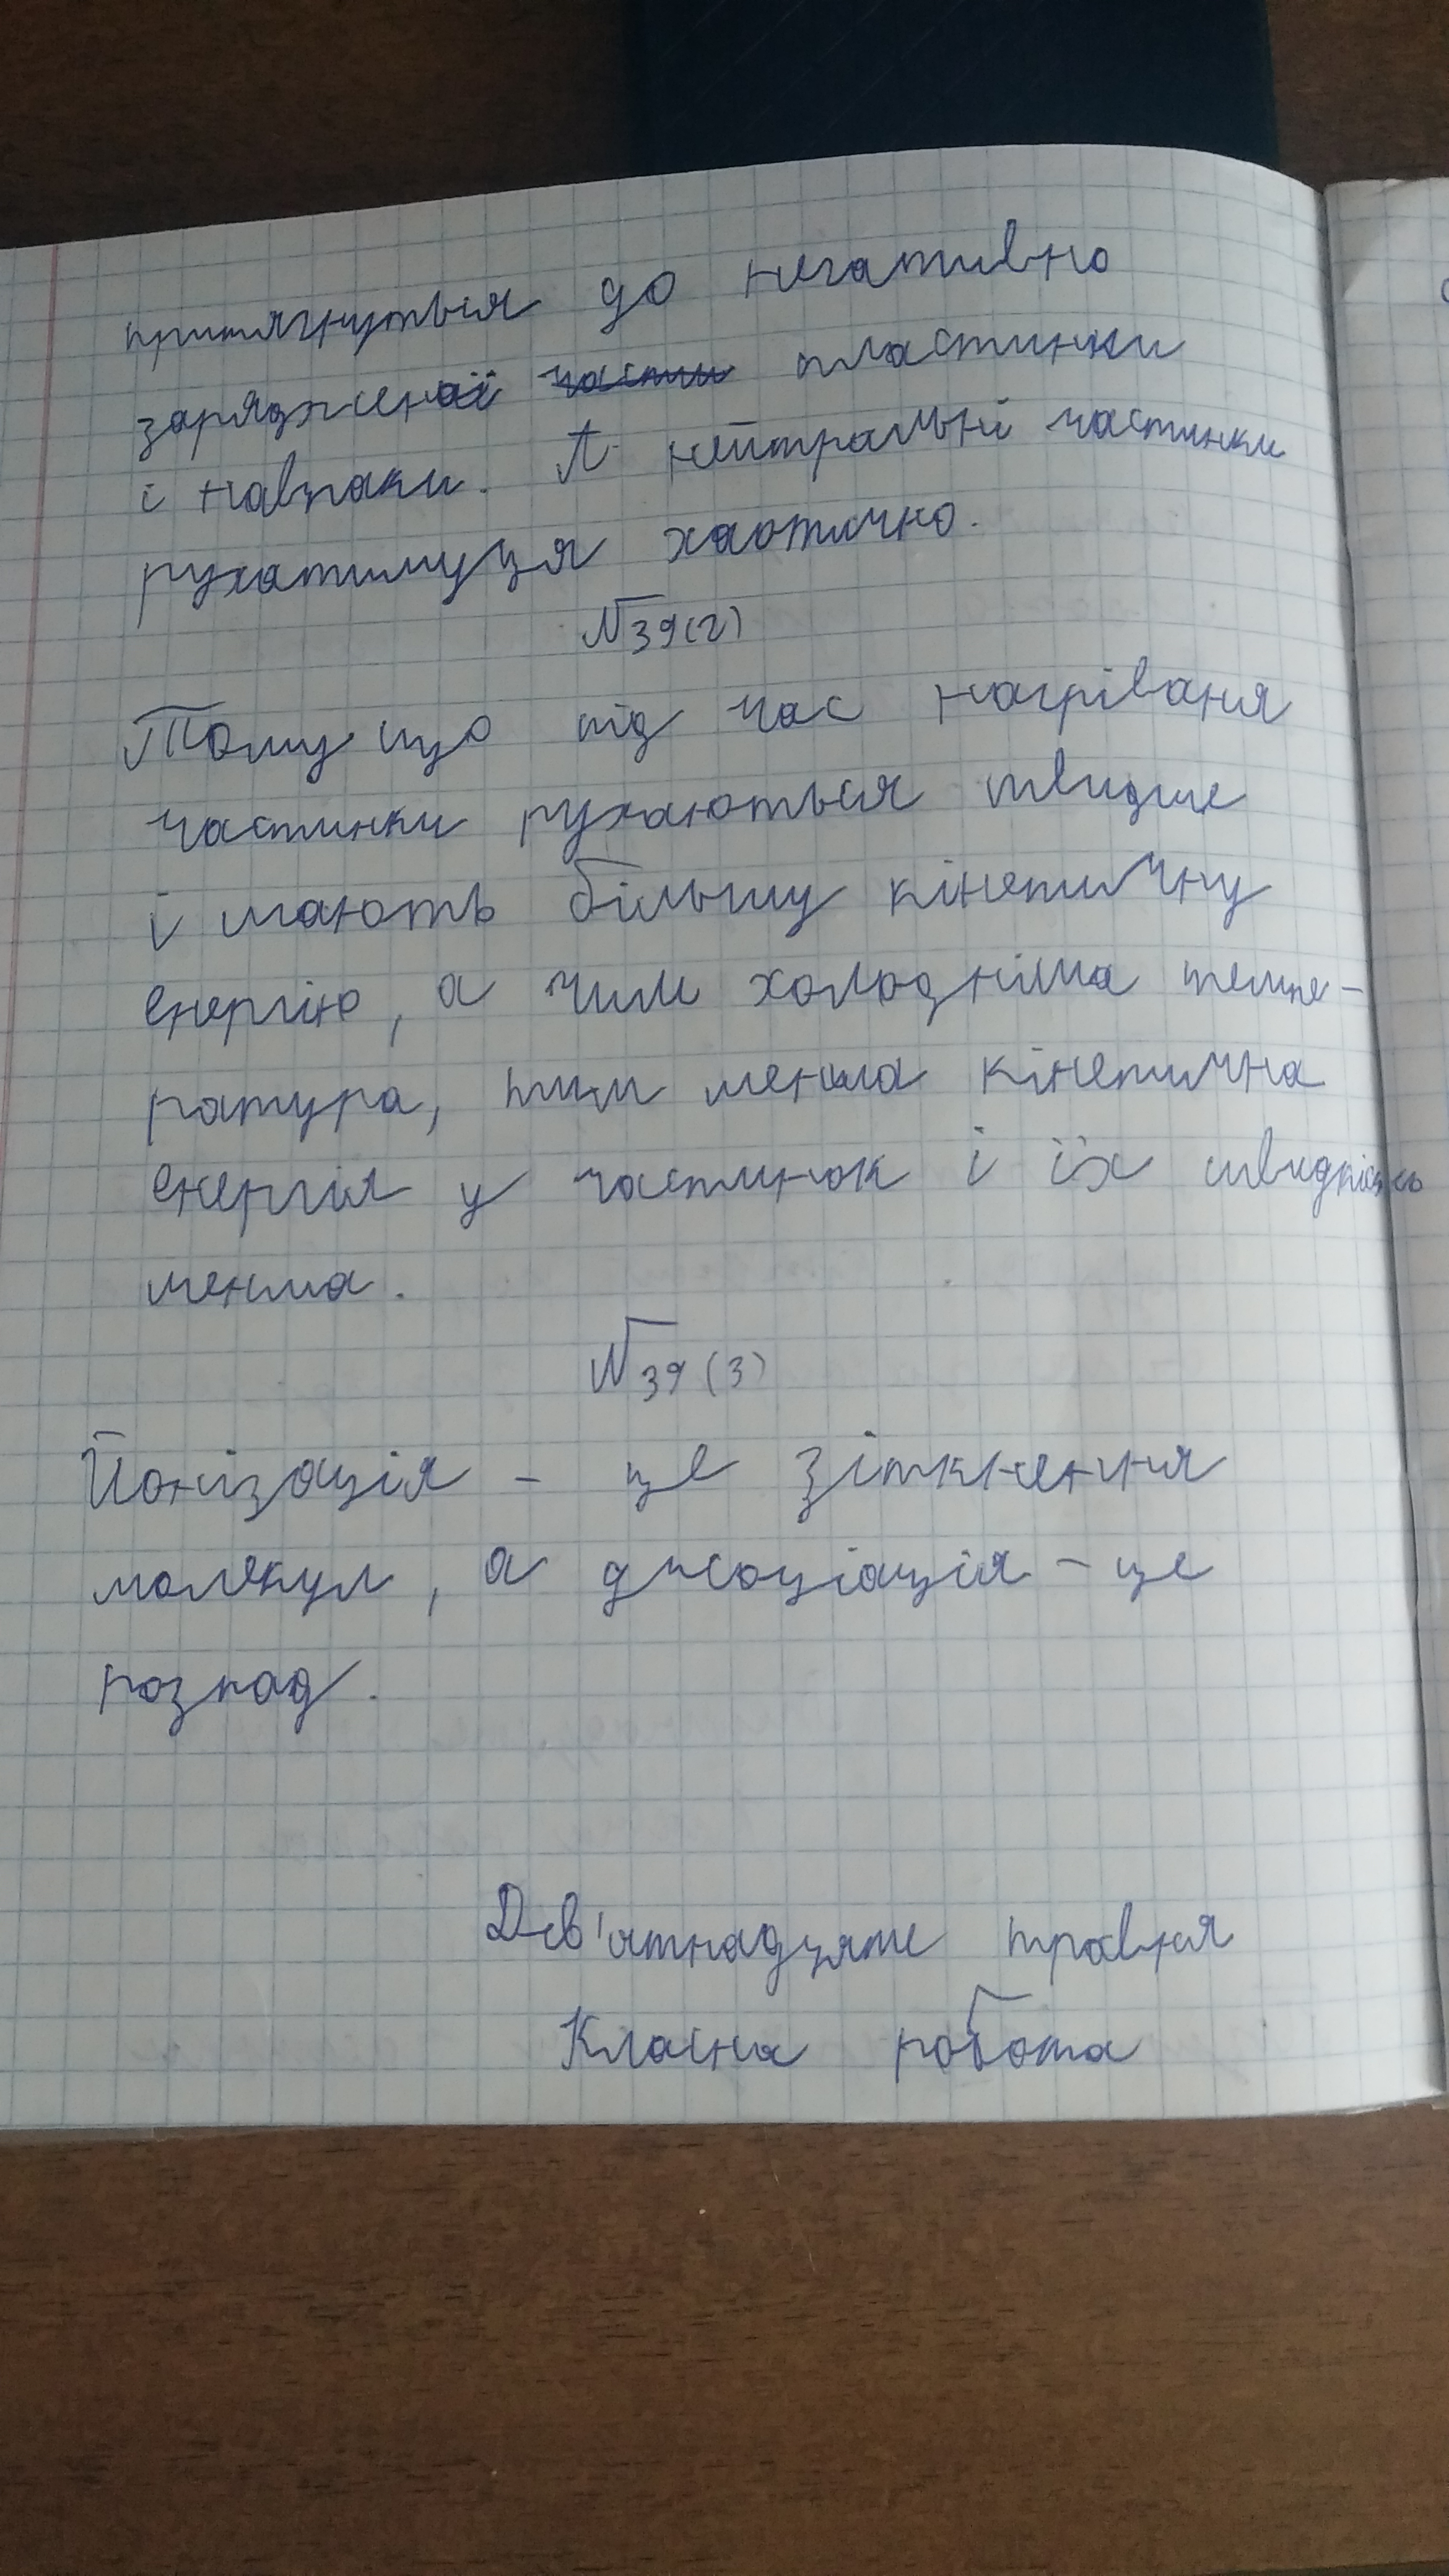 притягнуться до негативно
зарядженої части пластинки
і навпаки. А нейтральні частинки
рухатимуця хаотично.
№39(2)
Тому що під час нагріваня
частинки рухаються швидше
і мають більшу кінетичну
енергію, а чим холодніша темпе-
ратура, тим менша кінетична
енергія у частинок і їх швидкість
менша.
№39(3)
Йонізація - це зіткнення
молекул, а дисоціація - це
розпад.
Дев'ятнадцяте травня
Класна робота